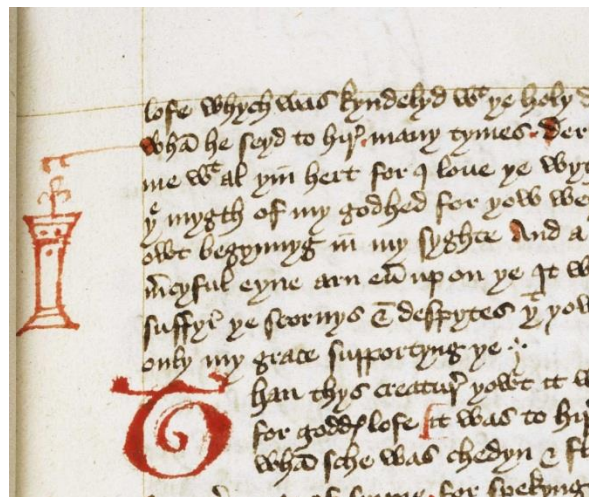 lofe whych was kyndelyd wt ye holy d
whā he seyd to hir. many tymes. Der
me wt al yin hert for I loue ye wyt
ye mygth of my godhed for yow we
owt begynnyg in my syghte And a
mcyful eyne arn eu up on ye It w
suffyr ye scornys & despytes yt yow
only my grace supportyng ye
Than thys creatur yowt it w
for godds lofe it was to hir
whā sche was chedyn & f
for spekyng